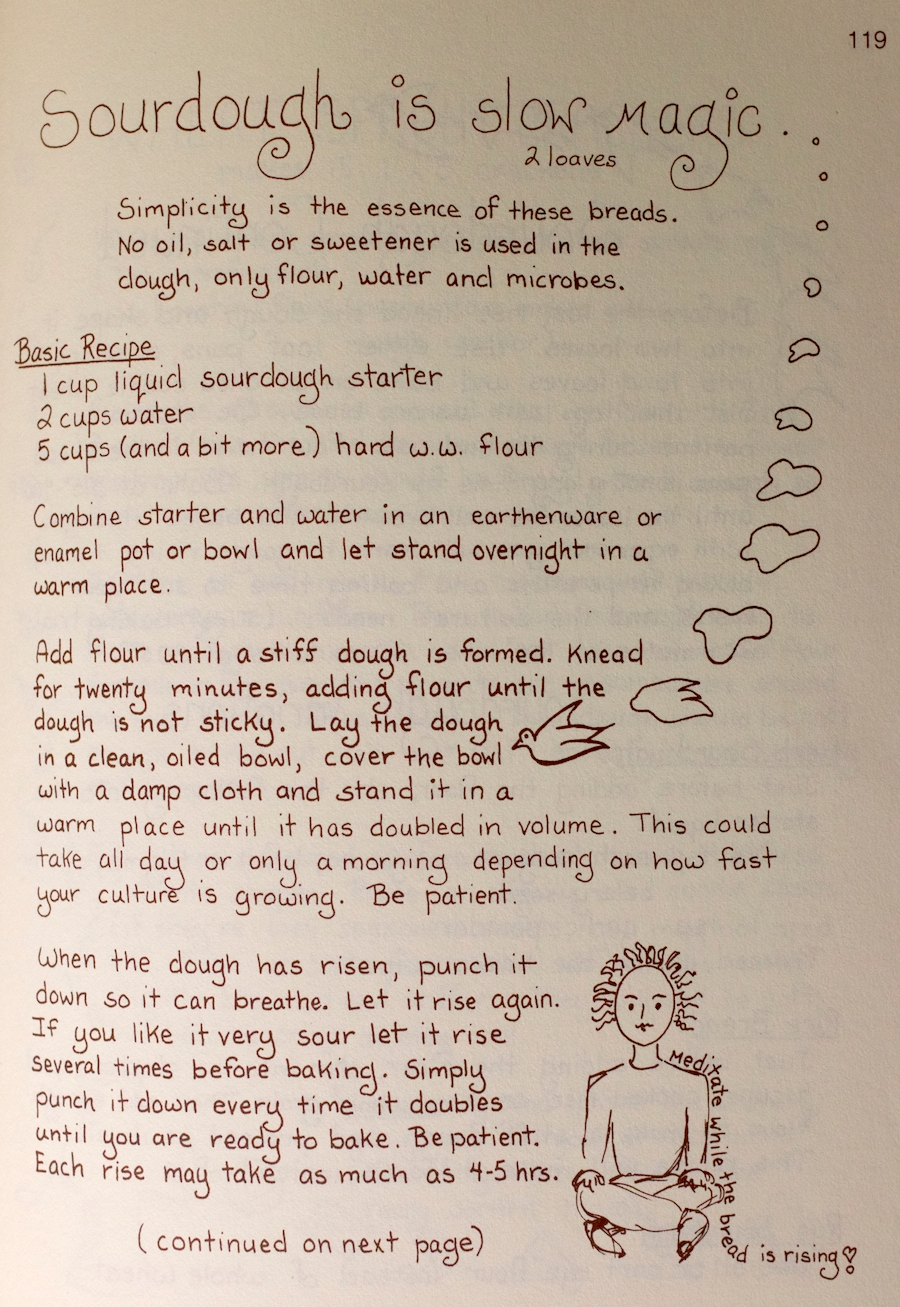 119
Sourdough is slow magic.
2 loaves
Simplicity is the essence of these breads.
No oil, salt or sweetener is used in the
dough, only flour, water and microbes.
Basic Recipe
1 cup liquid sourdough starter
2 cups water
5 cups (and a bit more) hard w.w. flour
Combine starter and water in an earthenware or
enamel pot or bowl and let stand overnight in a
warm place.
Add flour until a stiff dough is formed. Knead
for twenty minutes, adding flour until the
dough is not sticky. Lay the dough
in a clean, oiled bowl, cover the bowl
with a damp cloth and stand it in a
warm place until it has doubled in volume. This could
take all day or only a morning depending on how fast
your culture is growing. Be patient.
When the dough has risen, punch it
down so it can breathe. Let it rise again.
If you like it very sour let it rise
several times before baking. Simply
punch it down every time it doubles
until you are ready to bake. Be patient.
Each rise may take as much as 4-5 hrs.
Meditate while the bread is rising!
(continued on next page)